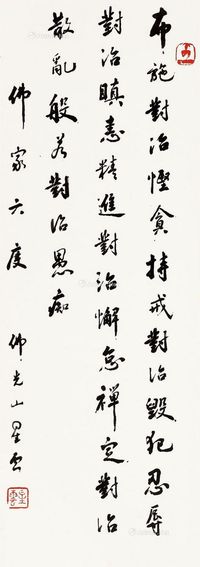 布施對治慳貪持戒對治毀犯忍辱
對治瞋恚精進對治懈怠禪定對治
散亂般若對治愚痴
佛家六度 佛光山星雲